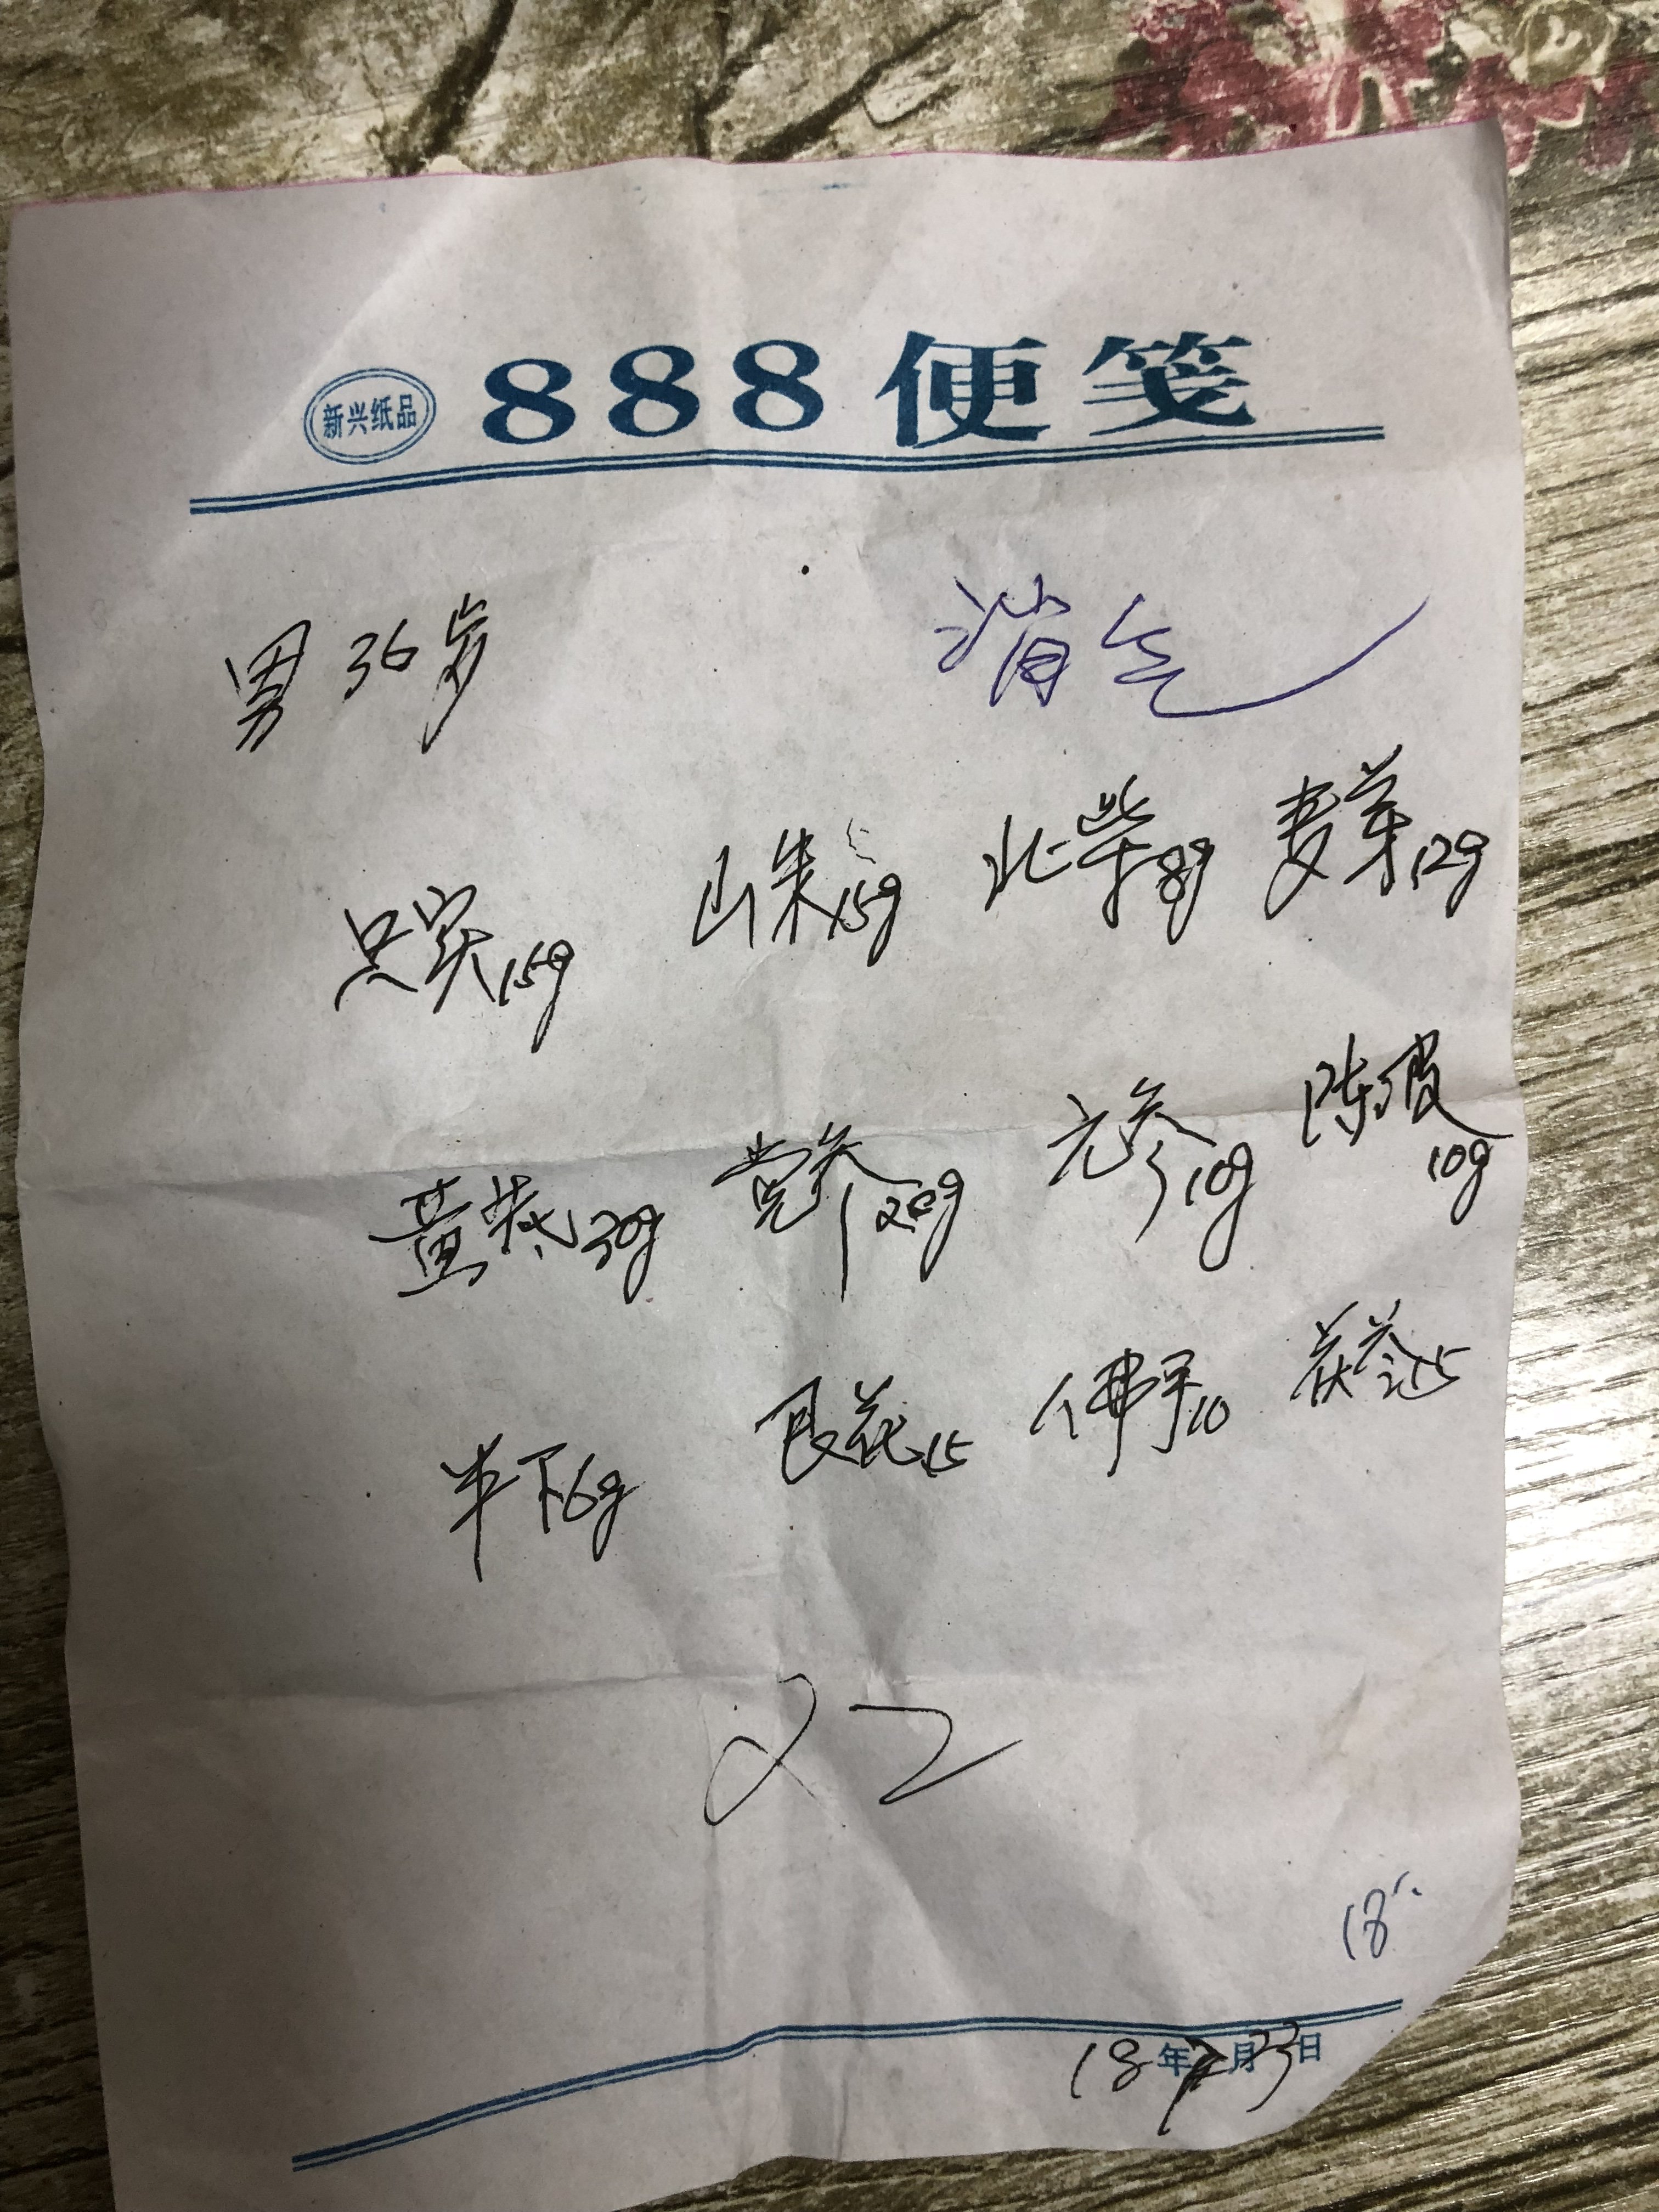 新兴纸品 888便笺
男 36岁 消气
只实15g 山朱15g 北柴8g 麦芽12g
黄芪30g 党参20g 元参10g 陈皮10g
半下6g 艮花15 佛手10 茯苓15
X2
18
18年7月23日